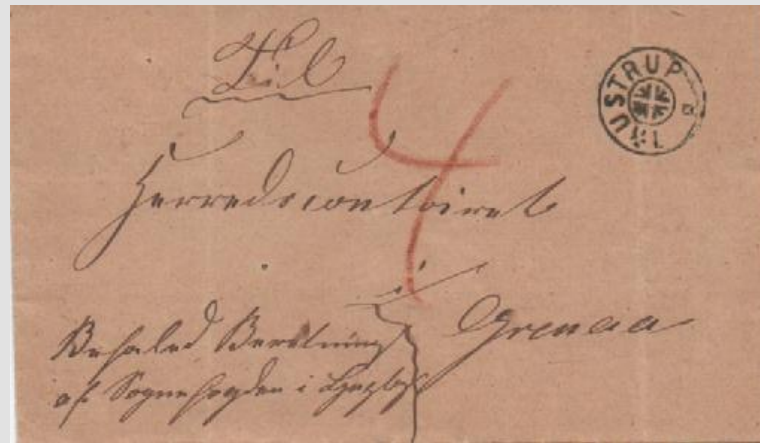 Til
4
TRUSTRUP
Herredscontoiret
i Grenaa
Befaled Beretning
af Sognefogden i Lyngby